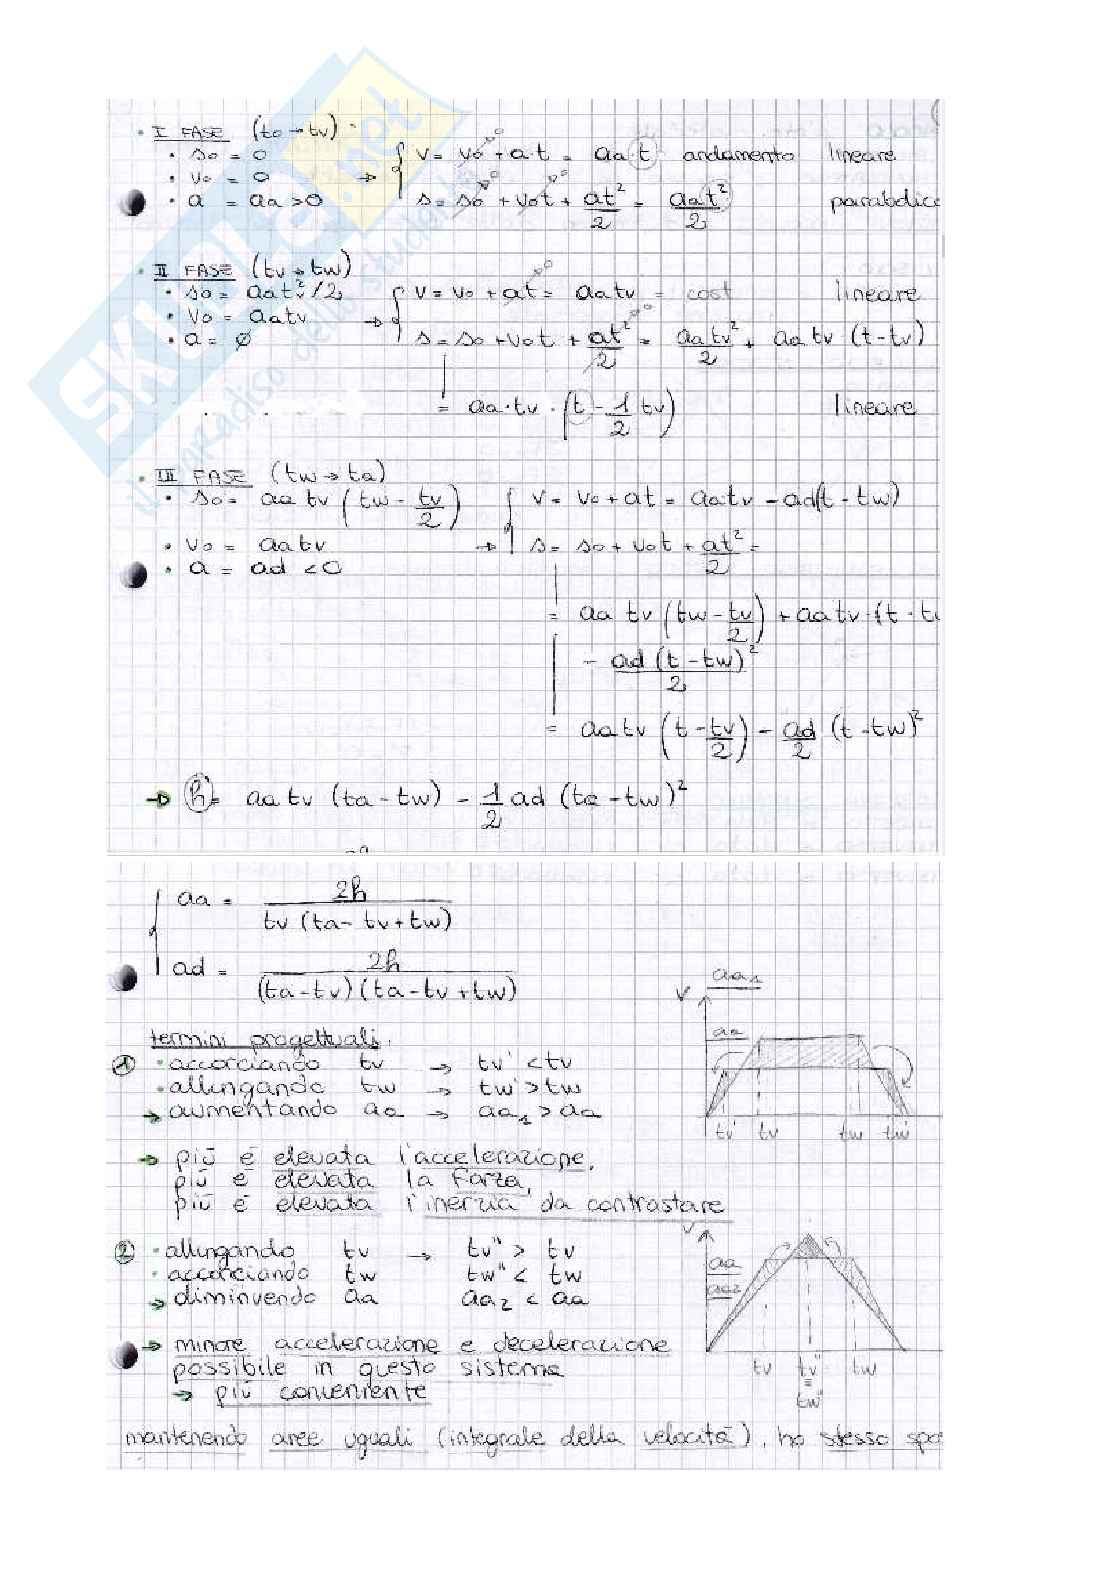 SKUOLA.net
il paradiso dello studente
• I FASE (to → tv)
• so = 0
• vo = 0
• a = aa > 0
→ { v = vo + a·t = aa·t andamento lineare
s = so + vot + at²/2 = aat²/2 parabolico
• II FASE (tv → tw)
• so = aatv²/2
• vo = aatv
• a = ø
→ { v = vo + at = aatv = cost lineare
s = so + vot + at²/2 = aatv²/2 + aatv (t-tv)
= aa·tv·(t - 1/2 tv) lineare
• III FASE (tw → ta)
• so = aa tv (tw - tv/2)
• vo = aatv
• a = ad < 0
{ v = vo + at = aatv - ad(t - tw)
→ s = so + vot + at²/2 =
= aa tv (tw - tv/2) + aatv·(t - t
- ad (t - tw)²/2
= aatv (t - tv/2) - ad/2 (t - tw)²
→ h = aatv (ta - tw) - 1/2 ad (ta - tw)²
{ aa = 2h / tv (ta - tv + tw)
ad = 2h / (ta - tv)(ta - tv + tw)
termini progettuali.
1 • accorciando tv → tv' < tv
• allungando tw → tw' > tw
→ aumentando aa → aa1 > aa
→ più è elevata l'accelerazione,
più è elevata la forza,
più è elevata l'inerzia da contrastare
v
aa1
aa
tv' tv tw tw'
2 • allungando tv → tv" > tv
• accorciando tw tw" < tw
→ diminuendo aa aa2 < aa
→ minore accelerazione e decelerazione
possibile in questo sistema
→ più conveniente
v
aa
aa2
tv tv" tw
=
tw"
mantenendo aree uguali (integrale della velocità), ho stesso spo